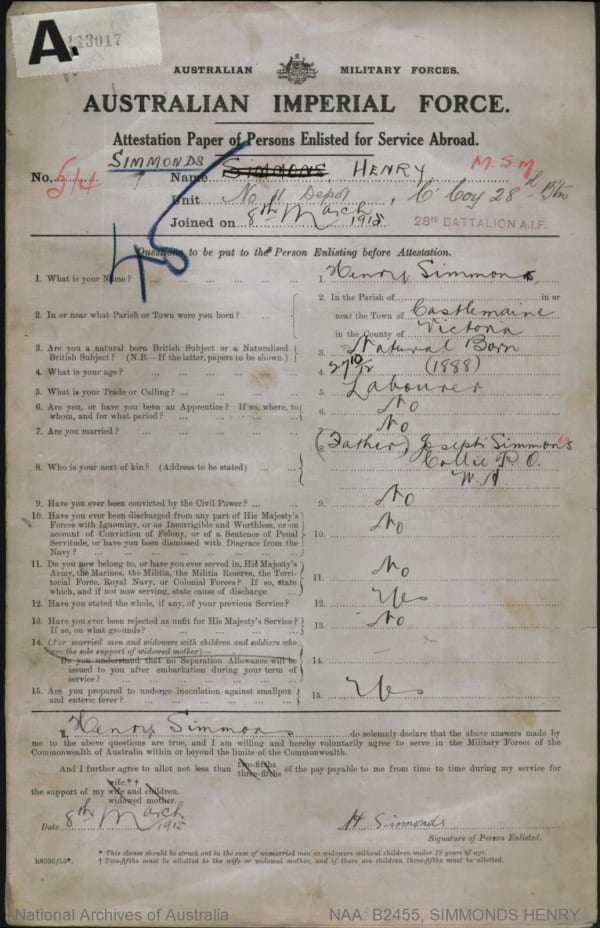 A.
13017
AUSTRALIAN MILITARY FORCES.
AUSTRALIAN IMPERIAL FORCE.
Attestation Paper of Persons Enlisted for Service Abroad.
SIMMONDS
No. 544 Name Simmons HENRY. M.S.M
Unit No 11 Depot, C Coy 28th Btn
Joined on 8th March 1915 28TH BATTALION A.I.F.
45
Questions to be put to the Person Enlisting before Attestation.
1. What is your Name? ... 1. Henry Simmons
2. In or near what Parish or Town were you born? ... 2. In the Parish of in or
near the Town of Castlemaine
in the County of Victoria
3. Are you a natural born British Subject or a Naturalised
British Subject? (N.B.—If the latter, papers to be shown.) 3. Natural Born
4. What is your age? ... 4. 27 10/12 (1888)
5. What is your Trade or Calling? ... 5. Labourer
6. Are you, or have you been an Apprentice? If so, where, to
whom, and for what period? ... 6. No
7. Are you married? ... 7. No
8. Who is your next of kin? (Address to be stated) ... 8. (Father) Joseph Simmons
Collie P.O.
W.A.
9. Have you ever been convicted by the Civil Power? ... 9. No
10. Have you ever been discharged from any part of His Majesty's
Forces with Ignominy, or as Incorrigible and Worthless, or on
account of Conviction of Felony, or of a Sentence of Penal
Servitude, or have you been dismissed with Disgrace from the
Navy? ... 10. No
11. Do you now belong to, or have you ever served in, His Majesty's
Army, the Marines, the Militia, the Militia Reserve, the Terri-
torial Force, Royal Navy, or Colonial Forces? If so, state
which, and if not now serving, state cause of discharge 11. No
12. Have you stated the whole, if any, of your previous Service? 12. Yes
13. Have you ever been rejected as unfit for His Majesty's Service?
If so, on what grounds? ... 13. No
14. (For married men and widowers with children and soldiers who
are the sole support of widowed mother)—
Do you understand that no Separation Allowance will be
issued to you after embarkation during your term of
service? ... 14. —
15. Are you prepared to undergo inoculation against smallpox
and enteric fever? ... 15. Yes
I, Henry Simmons do solemnly declare that the above answers made by
me to the above questions are true, and I am willing and hereby voluntarily agree to serve in the Military Forces of the
Commonwealth of Australia within or beyond the limits of the Commonwealth.
And I further agree to allot not less than two-fifths
three-fifths of the pay payable to me from time to time during my service for
the support of my wife.* †
wife and children.
widowed mother.
Date 8th March 1915 H Simmonds
Signature of Person Enlisted.
* This clause should be struck out in the case of unmarried men or widowers without children under 18 years of age.
† Two-fifths must be allotted to the wife or widowed mother, and if there are children three-fifths must be allotted.
National Archives of Australia NAA: B2455, SIMMONDS HENRY